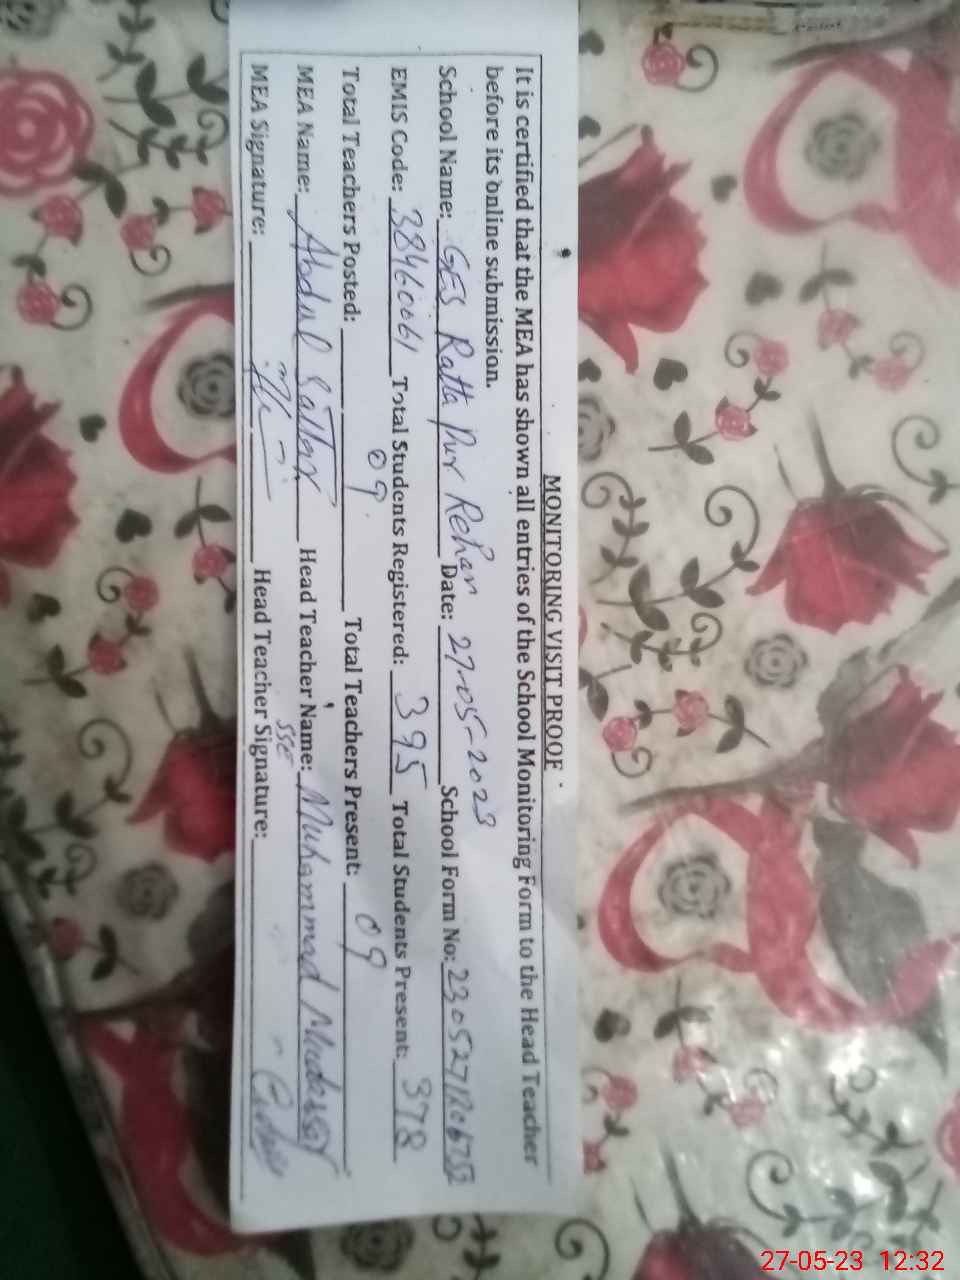 MONITORING VISIT PROOF
It is certified that the MEA has shown all entries of the School Monitoring Form to the Head Teacher
before its online submission.
School Name: GES Ratta Pur Rehan Date: 27-05-2023 School Form No:
EMIS Code: 38460061 Total Students Registered: 395 Total Students Present: 378
Total Teachers Posted: 09 Total Teachers Present: 09
MEA Name: Abdul Sattar Head Teacher Name: Muhammad Mudasser
SSE
MEA Signature: Head Teacher Signature:
27-05-23 12:32